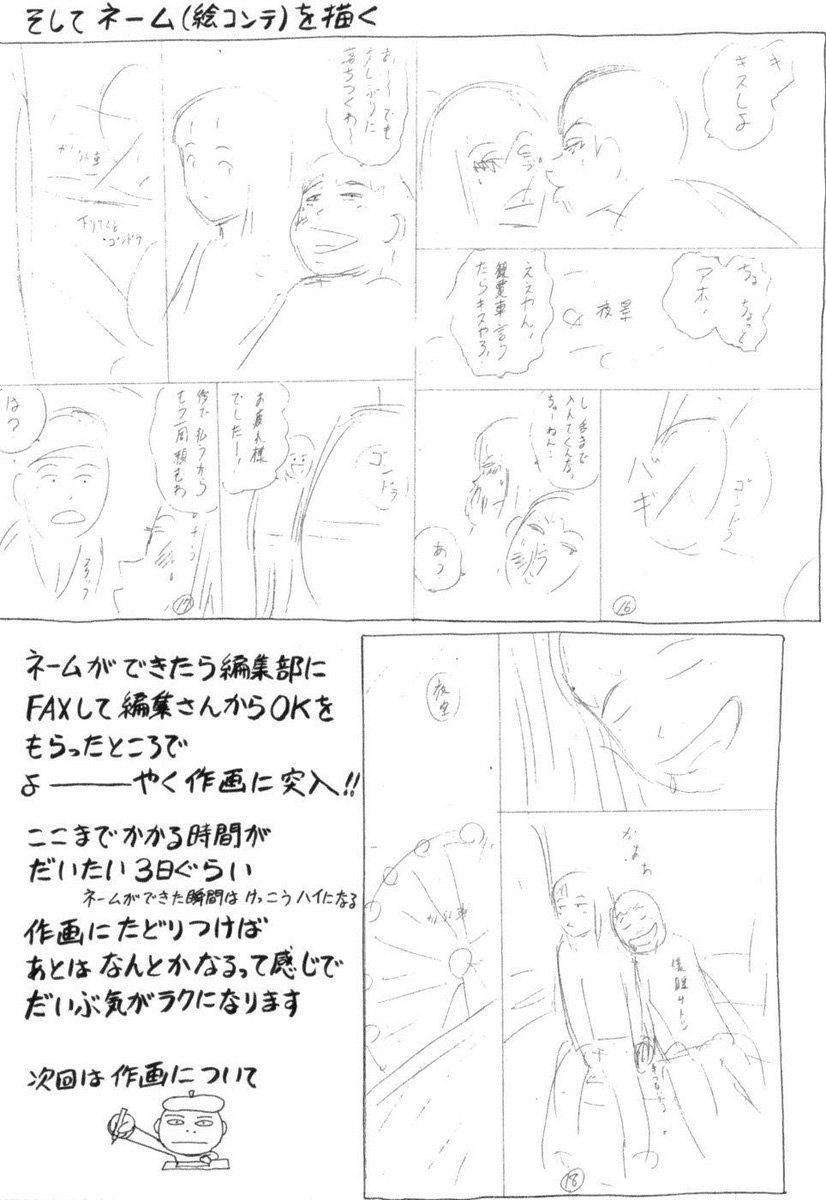 そしてネーム(絵コンテ)を描く
キ
キスしよ
ちょ ちょっと
アホ、
夜景
ええやん、
観覧車言う
たらキスやろ、
ゴンドラ
バ
ギ
16
し、舌まで
入れてくんなっ
ちゅーねん…
あっ
あーーでも
久しぶりに
落ちつくわ〜
お疲れ様
でしたー!
ゴンドラ
俺で払うから
もう一周頼むわ
は?
17
ネームができたら編集部に
FAXして編集さんからOKを
もらったところで
よ――――やく作画に突入!!
ここまでかかる時間が
だいたい3日ぐらい
ネームができた瞬間はけっこうハイになる
作画にたどりつけば
あとはなんとかなるって感じで
だいぶ気がラクになります
次回は作画について
夜空
18